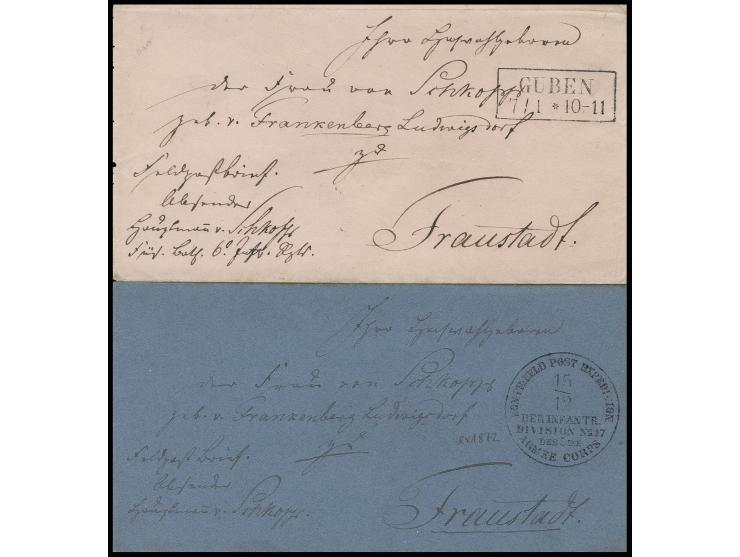 Ihro Hochwohlgeboren
der Frau von Schkopp
GUBEN
7 / 1 * 10-11
geb. v. Frankenberg Ludwigsdorf
zu
Feldpostbrief.
Absender
Hauptmann v. Schkopp
Füs. Batl. 6. Inftr. Rgts.
Fraustadt.
Ihro Hochwohlgeboren
der Frau von Schkopp
geb. v. Frankenberg Ludwigsdorf
zu
Feldpost Brief.
Absender
Hauptmann v. Schkopp.
Fraustadt.
FELD POST EXPEDITION
15
12
DER INFANTR.
DIVISION No 17
DES
ARMEE CORPS